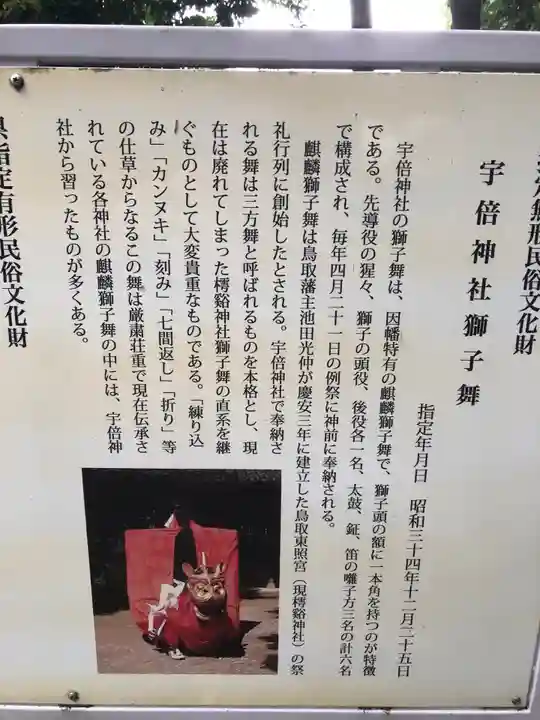 無形民俗文化財
宇倍神社獅子舞
指定年月日　昭和三十四年十二月二十五日
宇倍神社の獅子舞は、因幡特有の麒麟獅子舞で、獅子頭の額に一本角を持つのが特徴
である。先導役の猩々、獅子の頭役、後役各一名、太鼓、鉦、笛の囃子方三名の計六名
で構成され、毎年四月二十一日の例祭に神前に奉納される。
麒麟獅子舞は鳥取藩主池田光仲が慶安三年に建立した鳥取東照宮（現樗谿神社）の祭
礼行列に創始したとされる。宇倍神社で奉納さ
れる舞は三方舞と呼ばれるものを本格とし、現
在は廃れてしまった樗谿神社獅子舞の直系を継
ぐものとして大変貴重なものである。「練り込
み」「カンヌキ」「刻み」「七間返し」「折り」等
の仕草からなるこの舞は厳粛荘重で現在伝承さ
れている各神社の麒麟獅子舞の中には、宇倍神
社から習ったものが多くある。
県指定有形民俗文化財